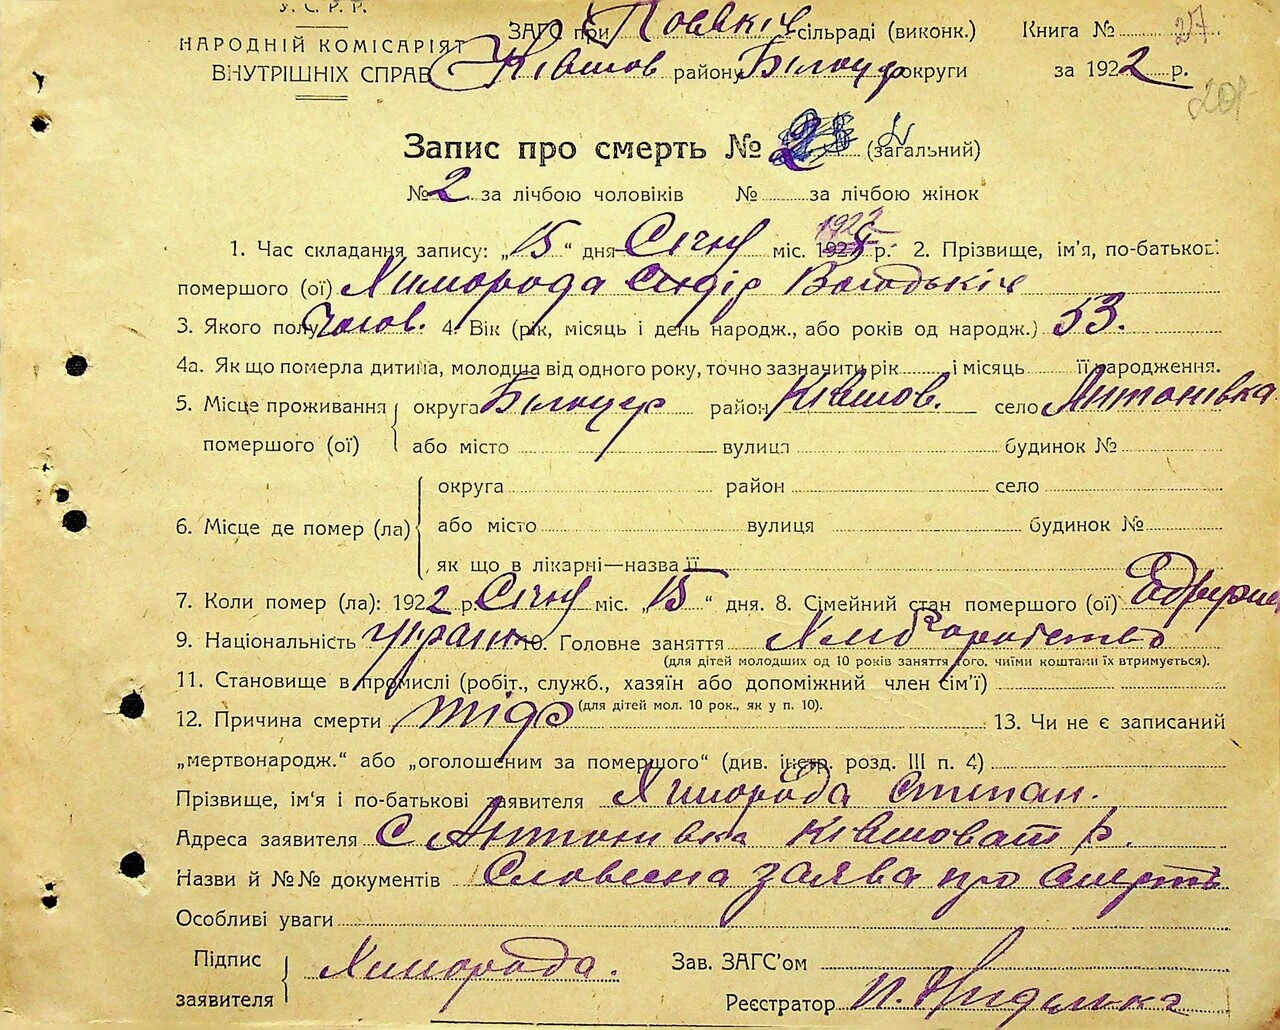 У.С.Р.Р.
НАРОДНІЙ КОМІСАРІЯТ
ВНУТРІШНІХ СПРАВ
ЗАГС при сільраді (виконк.) Книга № 27
району Білоцер округи за 1922 р.
201
Запис про смерть № 2 (загальний)
№ 2 за лічбою чоловіків № за лічбою жінок
1. Час складання запису: „15“ дня Січня міс. 1922 р. 2. Прізвище, ім'я, по-батькові
помершого (ої) Химорода
3. Якого полу Чолов. 4. Вік (рік, місяць і день народж., або років од народж.) 53.
4а. Як що померла дитина, молодша від одного року, точно зазначити рік і місяць її народження.
5. Місце проживання помершого (ої) округа Білоцер район Ківшов. село Антонівка
або місто вулиця будинок №
6. Місце де помер (ла) округа район село
або місто вулиця будинок №
як що в лікарні—назва її
7. Коли помер (ла): 1922 р. Січня міс. „15“ дня. 8. Сімейний стан помершого (ої)
9. Національність україн 10. Головне заняття Хлиборобство
(для дітей молодших од 10 років заняття того, чиїми коштами їх втримується).
11. Становище в промислі (робіт., служб., хазяїн або допоміжний член сім'ї)
(для дітей мол. 10 рок., як у п. 10).
12. Причина смерти тіф 13. Чи не є записаний
„мертвонародж.“ або „оголошеним за помершого“ (див. інстр. розд. III п. 4)
Прізвище, ім'я і по-батькові заявителя Химорода Степан.
Адреса заявителя С Антонивка Ківшоват р.
Назви й №№ документів Словесна заява про смерть
Особливі уваги
Підпис заявителя Химорода. Зав. ЗАГС'ом
Реєстратор П.